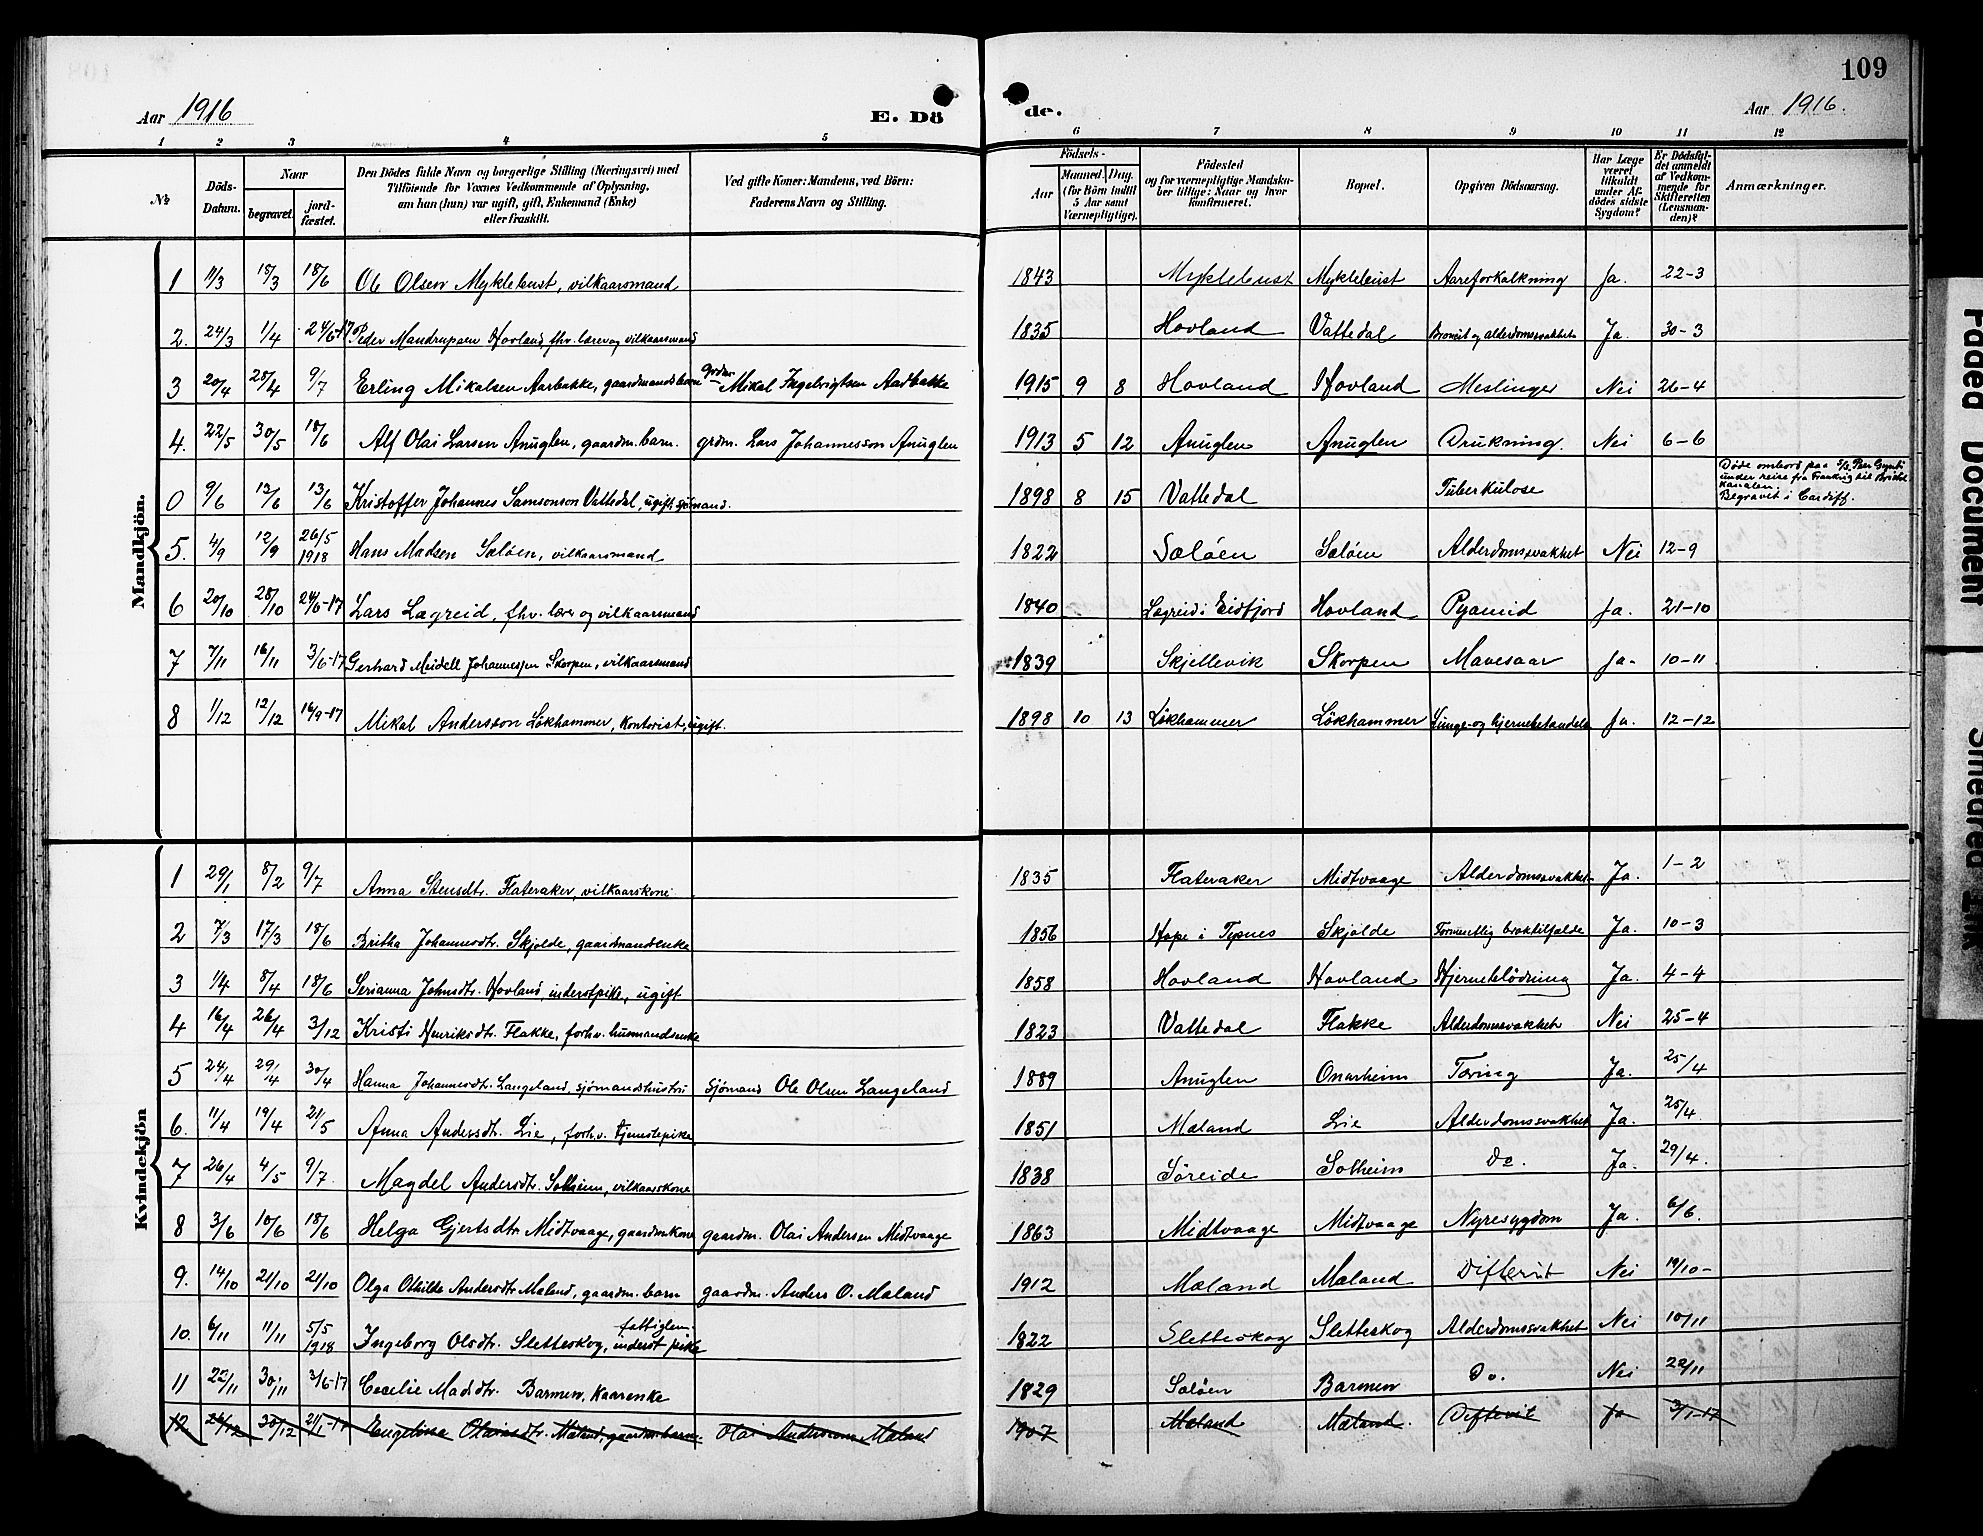 109
Aar 1916
E. Dö
de.
Aar 1916.
1 2 3 4 5 6 7 8 9 10 11 12
№
Döds-Datum.
Naar
begravet.
jordfæstet.
Den Dödes fulde Navn og borgerlige Stilling (Næringsvei) med
Tilföiende for Voxnes Vedkommende af Oplysning,
om han (hun) var ugift, gift, Enkemand (Enke)
eller fraskilt.
Ved gifte Koner: Mandens, ved Börn:
Faderens Navn og Stilling.
Födsels-
Aar
Maaned. Dag.
(for Börn indtil
5 Aar samt
Værnepligtige).
Födested
og for værnepligtige Mandskaber tillige: Naar og hvor
konfirmeret.
Bopæl.
Opgiven Dödsaarsag.
Har Læge
været
tilkaldt
under Afdödes sidste
Sygdom?
Er Dödsfaldet anmeldt
af Vedkommende for
Skifteretten
(Lensmanden)?
Anmærkninger.
Mandkjön.
1 11/3 18/3 18/6 Ole Olsen Myklebust, vilkaarsmand 1843 Myklebust Myklebust Aareforkalkning Ja. 22-3
2. 24/3 1/4 24/6-17 Peder Mandrupsen Hovland fhv. lærer og vilkaarsmand 1835 Hovland Vattedal Bronkit og alderdomssvakhet Ja. 30-3
3 20/4 28/4 9/7 Erling Mikalsen Aarbakke, gaardmandsbarn grdm. Mikal Ingebrigtsen Aadbakke 1915 9 8 Hovland Hovland Meslinger Nei 26-4
4. 22/5 30/5 18/6 Alf Olai Larsen Anuglen, gaardm. barn. grdm. Lars Johannesson Anuglen 1913 5 12 Anuglen Anuglen Drukning. Nei 6-6
0 9/6 13/6 13/6 Kristoffer Johannes Samsonson Vattedal, ugift sjømand. 1898 8 15 Vattedal Tuberkulose Døde ombord paa S/S Peer Gynt i
under reise fra Frankrig til Bristol
kanalen.
Begravet i Cardiff.
5. 4/9 12/9 26/5 1918 Hans Madsen Sæløen, vilkaarsmand 1822 Sæløen Sæløen Alderdomssvakhet Nei 12-9
6 20/10 28/10 24/6-17 Lars Lægreid, fhv. lærer og vilkaarsmand 1840 Lægreid i Eidfjord Hovland Pyæmid Ja. 21-10
7 7/11 16/11 3/6-17 Gerhard Meidell Johannessen Skorpen, vilkaarsmand 1839 Skjellevik Skorpen Mavesaar Ja- 10-11
8 1/12 12/12 16/9-17 Mikal Andersson Løkhammer, kontorist, ugift. 1898 10 13 Løkhammer Løkhammer Lunge- og hjernebetændelse Ja. 12-12
Kvindekjön
1 29/1 8/2 9/7 Anna Stensdtr. Flateraker, vilkaarskone 1835 Flateraker Midtvaage Alderdomssvakhet Ja. 1-2
2 7/3 17/3 18/6 Britha Johannesdtr. Skjølde, gaardmandsenke 1856 Hope i Tysnes Skjølde Formentlig braktilfælde Ja. 10-3
3 1/4 8/4 18/6 Serianna Johnsdtr. Hovland, inderstpike, ugift 1858 Hovland Hovland Hjerneblødning Ja. 4-4
4 16/4 26/4 3/12 Kristi Henriksdtr. Flakke, forhv. husmandsenke 1823 Vattedal Flakke Alderdomssvakhet Nei 25-4
5 24/4 29/4 30/4 Hanna Johannesdtr. Langeland, sjømandshustru sjømand Ole Olsen Langeland 1889 Anuglen Onarheim Tæring Ja. 25/4
6. 11/4 19/4 21/5 Anna Andersdtr. Lie, forhv. tjenestepike 1851 Mæland Lie Alderdomssvakhet Ja. 25/4.
7 26/4 4/5 9/7. Magdel Andersdtr. Solheim, vilkaarskone 1838 Søreide Solheim Do. Ja. 29/4.
8 3/6 10/6 18/6 Helga Gjertsdtr. Midtvaage, gaardmkone gaardm. Olai Andersen Midtvaage 1863 Midtvaage Midtvaage Nyresygdom Ja. 6/6.
9. 14/10 21/10 21/10 Olga Othilde Andersdtr. Mæland, gaardm. barn gaardm. Anders O. Mæland 1912 Mæland Mæland Difterit Nei 19/10-
10. 6/11 11/11 5/5 1918 Ingeborg Olsdtr. Sletteskog, fattiglem. inderst pike 1822 Sletteskog Sletteskog Alderdomssvakhet Nei 10/11
11 22/11 30/11 3/6-17 Cecelie Madsdtr. Barmen, kaarenke 1829 Sæløen Barmen Do. Nei 22/11
12 26/12 30/12 21/1-17 Engelina Olaisdtr. Mæland, gaardm. barn. Olai Anderssøn Mæland 1907 Mæland Mæland. Difterit Ja 3/1-17
Faded Document
Smeared Ink